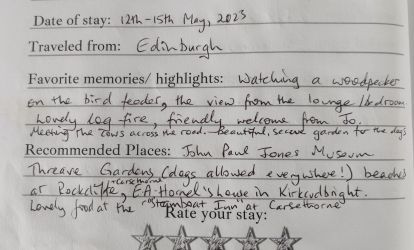 Date of stay: 12th-15th May, 2023
Traveled from: Edinburgh
Favorite memories/ highlights: Watching a woodpecker
on the bird feeder, the view from the lounge/bedroom
Lovely log fire, friendly welcome from Jo.
Meeting the cows across the road. Beautiful, secure garden for the dogs
Recommended Places: John Paul Jones Museum
Threave Gardens (dogs allowed everywhere!) beaches
at Rockcliffe, Carsethorne, E.A. Hornel's house in Kirkcudbright.
Lovely food at the "Steamboat Inn" at Carsethorne
Rate your stay: